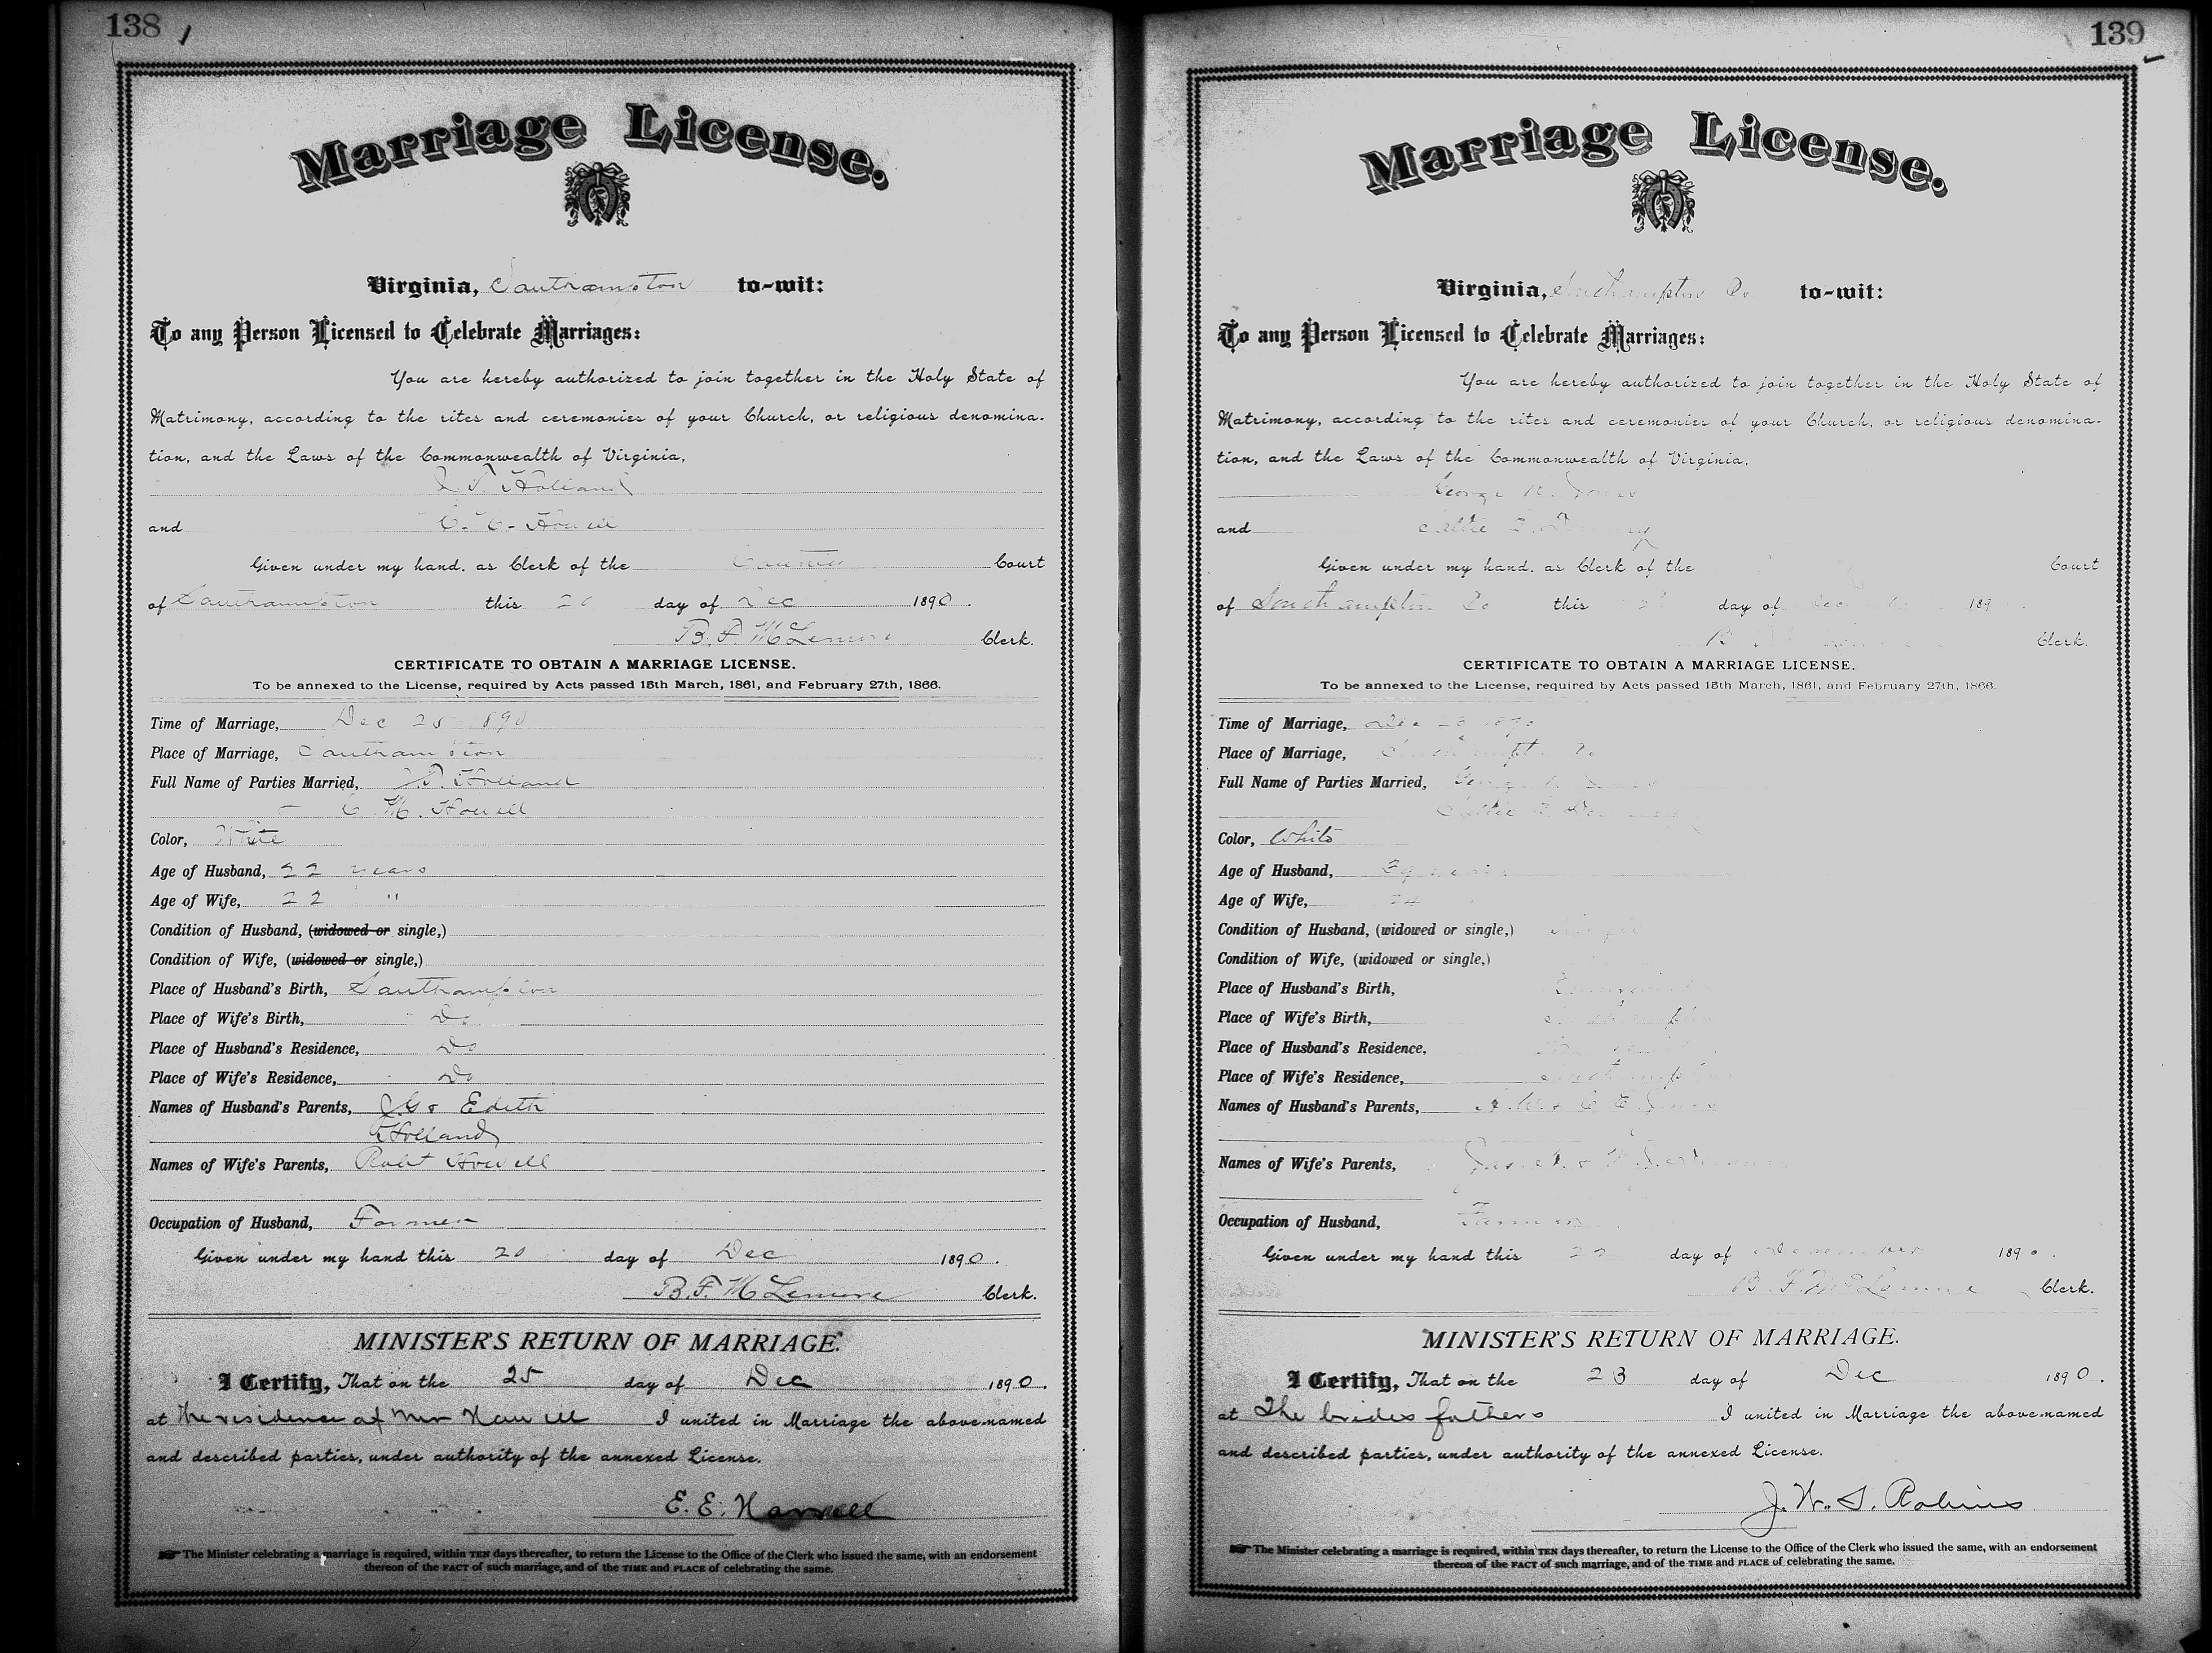 138
Marriage License.
Virginia, Southampton to-wit:
To any Person Licensed to Celebrate Marriages:
You are hereby authorized to join together in the Holy State of
Matrimony, according to the rites and ceremonies of your Church, or religious denomina-
tion, and the Laws of the Commonwealth of Virginia,
Holland
and Howell
Given under my hand, as Clerk of the County Court
of Southampton this day of Dec 1890.
B. F. McLemore Clerk.
CERTIFICATE TO OBTAIN A MARRIAGE LICENSE.
To be annexed to the License, required by Acts passed 15th March, 1861, and February 27th, 1866.
Time of Marriage, Dec 25 1890
Place of Marriage, Southampton
Full Name of Parties Married, Holland
C. M. Howell
Color, White
Age of Husband, 22 years
Age of Wife, 22 "
Condition of Husband, (widowed or single,)
Condition of Wife, (widowed or single,)
Place of Husband's Birth, Southampton
Place of Wife's Birth, Do
Place of Husband's Residence, Do
Place of Wife's Residence, Do
Names of Husband's Parents, Edith
Holland
Names of Wife's Parents, Robt Howell
Occupation of Husband, Farmer
Given under my hand this 20 day of Dec 1890.
B. F. McLemore Clerk.
MINISTER'S RETURN OF MARRIAGE.
I Certify, That on the 25 day of Dec 1890.
at the residence of Mr Howell I united in Marriage the above-named
and described parties, under authority of the annexed License.
E. E. Harrell
The Minister celebrating a marriage is required, within TEN days thereafter, to return the License to the Office of the Clerk who issued the same, with an endorsement
thereon of the FACT of such marriage, and of the TIME and PLACE of celebrating the same.
139
Marriage License.
Virginia, Southampton Co to-wit:
To any Person Licensed to Celebrate Marriages:
You are hereby authorized to join together in the Holy State of
Matrimony, according to the rites and ceremonies of your Church, or religious denomina-
tion, and the Laws of the Commonwealth of Virginia,
George Jones
and Sallie
Given under my hand, as Clerk of the Court
of Southampton Co this day of 189
B Clerk.
CERTIFICATE TO OBTAIN A MARRIAGE LICENSE.
To be annexed to the License, required by Acts passed 15th March, 1861, and February 27th, 1866.
Time of Marriage, Dec 23 1890
Place of Marriage, Southampton Co
Full Name of Parties Married, George
Sallie
Color, White
Age of Husband, years
Age of Wife, 24
Condition of Husband, (widowed or single,) Single
Condition of Wife, (widowed or single,)
Place of Husband's Birth,
Place of Wife's Birth, Southampton
Place of Husband's Residence,
Place of Wife's Residence, Southampton
Names of Husband's Parents, Jones
Names of Wife's Parents,
Occupation of Husband, Farmer
Given under my hand this day of December 1890.
B. F. McLemore Clerk.
MINISTER'S RETURN OF MARRIAGE.
I Certify, That on the 23 day of Dec 1890.
at The brides fathers I united in Marriage the above-named
and described parties, under authority of the annexed License.
J. W. S. Robins
The Minister celebrating a marriage is required, within TEN days thereafter, to return the License to the Office of the Clerk who issued the same, with an endorsement
thereon of the FACT of such marriage, and of the TIME and PLACE of celebrating the same.